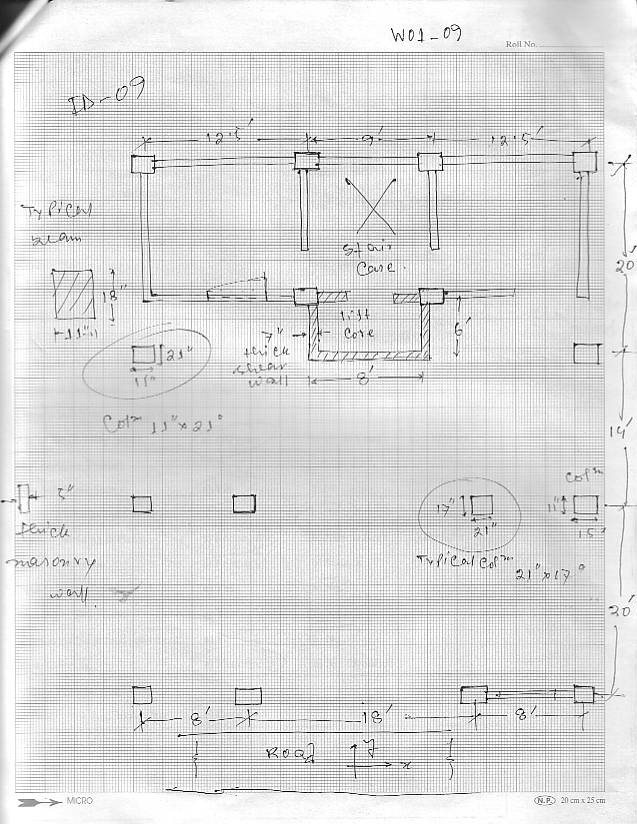 W01-09
Roll No.
ID-09
12.5' 9' 12.5'
Typical
Beam
18"
11"
Stair
Case.
20'
lift
Core
7"
thick
shear
wall
6'
8'
21"
Colm 11" x 21"
14'
5"
thick
masonry
wall.
17"
21"
Typical Colm
21" x 17"
Colm
11"
15"
20'
8' 18' 8'
Road
y
x
MICRO
N.P. 20 cm x 25 cm